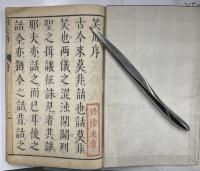 笑府序
古今來莫非話也話莫非
笑也兩儀之混沌開闢列
聖之揖讓征誅見者其誰
耶夫亦話之而已耳後之
話今亦猶今之話昔話之